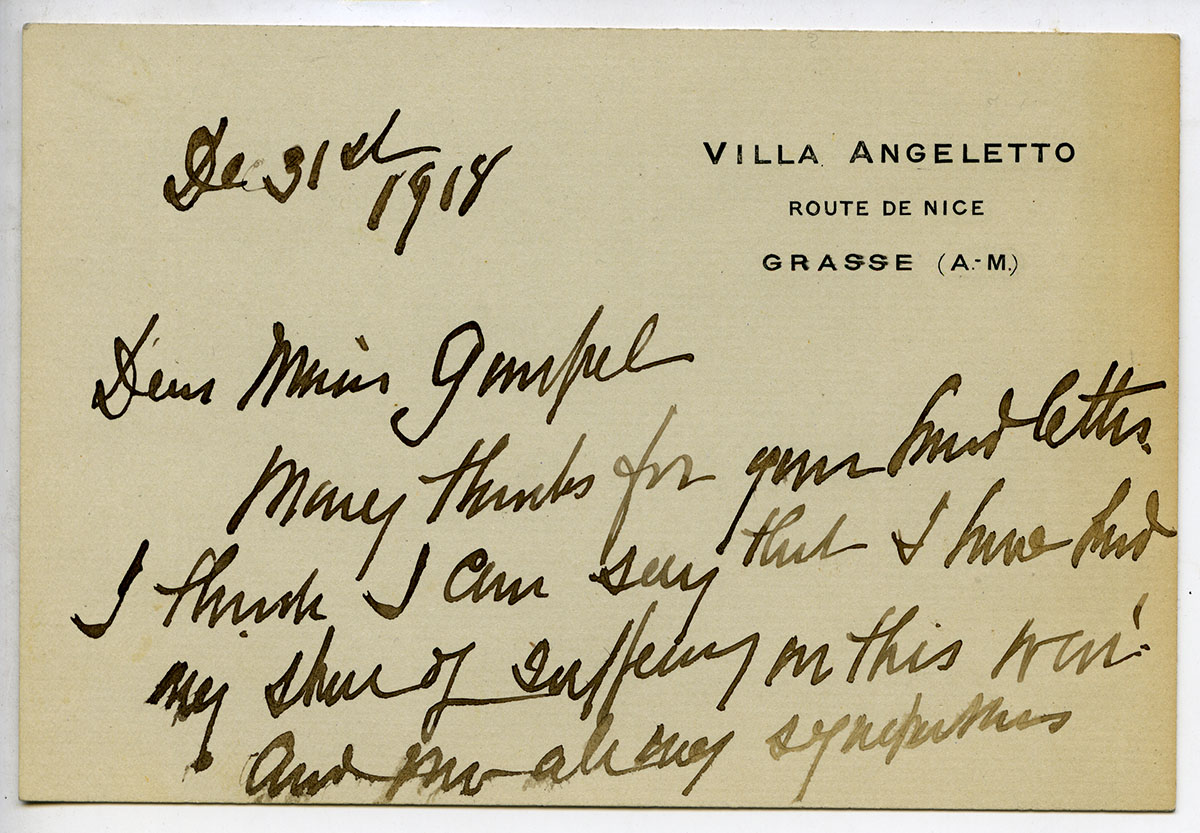 De 31st
1918
VILLA ANGELETTO
ROUTE DE NICE
GRASSE (A.-M.)
Dear
Many thanks for your kind letter.
I think I can say that I have had
my share of suffering on this war.
And all my sympathies